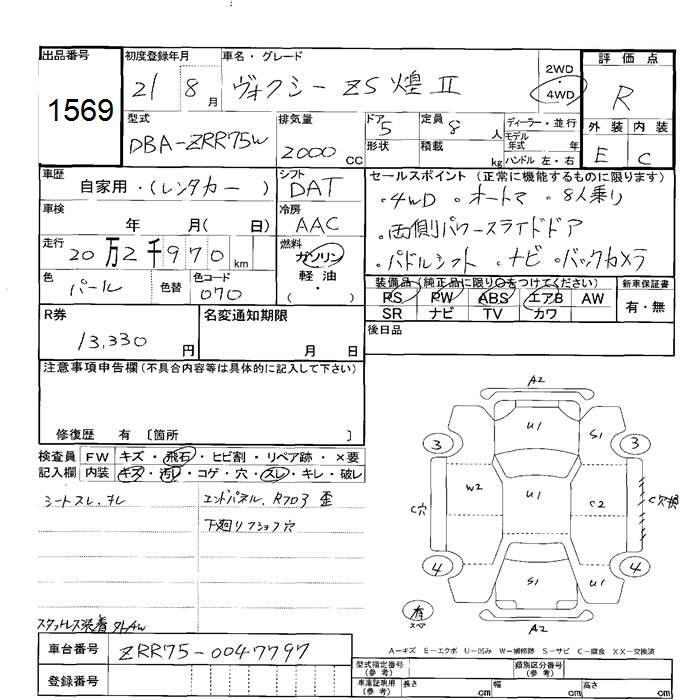 出品番号 初度登録年月 車名・グレード 2WD 評価点
1569 21 8月 ヴォクシー ZS 煌 II 4WD R
型式 排気量 ドア 定員 ディーラー・並行 外装 内装
DBA-ZRR75W 2000CC 5 8人 モデル年式 年 E C
形状 積載 kg ハンドル 左・右
車歴 シフト セールスポイント(正常に機能するものに限ります)
自家用・(レンタカー) DAT ・4WD ・オートマ ・8人乗り
車検 冷房
年 月(日) AAC ・両側パワースライドドア
走行 燃料
20万2千970km ガソリン ・パドルシフト ・ナビ ・バックカメラ
軽油
・( )
色 色替 色コード 装備品(純正品に限り○をつけてください) 新車保証書
パール 070 PS PW ABS エアB AW 有・無
SR ナビ TV カワ
R券 名変通知期限 後日品
13,330円 月 日
注意事項申告欄(不具合内容等は具体的に記入して下さい)
修復歴 有 〔箇所 〕
A2
U1 S1
3 3
W2 U1 C2
C穴
4 4
S1 U1
有
スペア
A2
検査員 FW キズ・飛石・ヒビ割・リペア跡・×要
記入欄 内装 キズ・汚レ・コゲ・穴・スレ・キレ・破レ
シートスレ、 エンドパネル、 歪
下廻り 穴
スタットレス装着
A=キズ E=エクボ U=凹み W=補修跡 S=サビ C=腐食 XX=交換済
車台番号 ZRR75-0047797
登録番号
型式指定番号(参考) 類別区分番号(参考)
車庫証明用(参考) 長さ cm 幅 cm 高さ cm